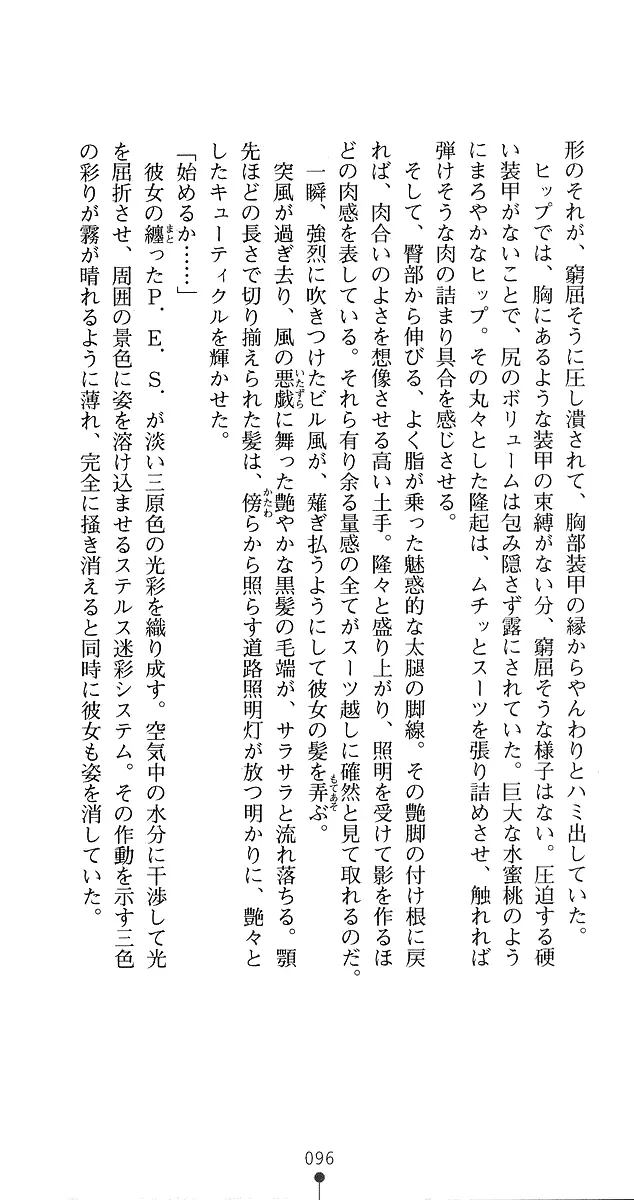 形のそれが、窮屈そうに圧し潰されて、胸部装甲の縁からやんわりとハミ出していた。
ヒップでは、胸にあるような装甲の束縛がない分、窮屈そうな様子はない。圧迫する硬
い装甲がないことで、尻のボリュームは包み隠さず露にされていた。巨大な水蜜桃のよう
にまろやかなヒップ。その丸々とした隆起は、ムチッとスーツを張り詰めさせ、触れれば
弾けそうな肉の詰まり具合を感じさせる。
そして、臀部から伸びる、よく脂が乗った魅惑的な太腿の脚線。その艶脚の付け根に戻
れば、肉合いのよさを想像させる高い土手。隆々と盛り上がり、照明を受けて影を作るほ
どの肉感を表している。それら有り余る量感の全てがスーツ越しに確然と見て取れるのだ。
一瞬、強烈に吹きつけたビル風が、薙ぎ払うようにして彼女の髪を弄ぶ。
もてあそ
突風が過ぎ去り、風の悪戯に舞った艶やかな黒髪の毛端が、サラサラと流れ落ちる。顎
いたずら
先ほどの長さで切り揃えられた髪は、傍らから照らす道路照明灯が放つ明かりに、艶々と
かたわ
したキューティクルを輝かせた。
「始めるか……」
彼女の纏ったP．E．S．が淡い三原色の光彩を織り成す。空気中の水分に干渉して光
まと
を屈折させ、周囲の景色に姿を溶け込ませるステルス迷彩システム。その作動を示す三色
の彩りが霧が晴れるように薄れ、完全に掻き消えると同時に彼女も姿を消していた。
096